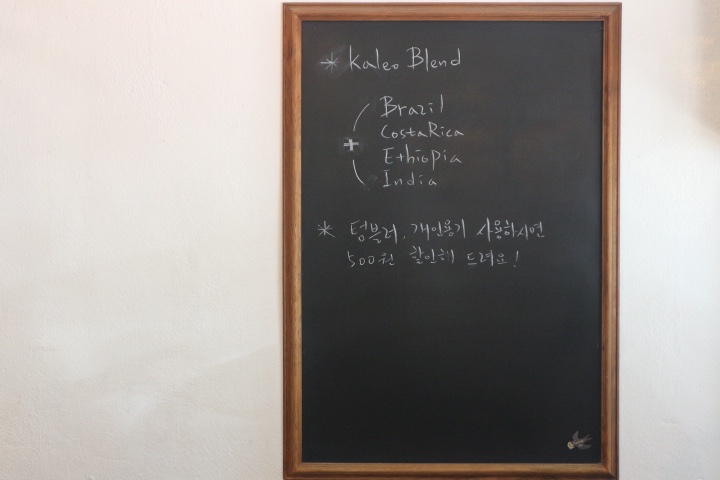 * Kaleo Blend
Brazil
CostaRica
+
Ethiopia
India
* 텀블러, 개인용기 사용하시면
500원 할인해 드려요!